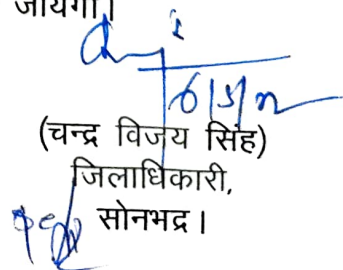 जायेगा।
6/5/22
(चन्द्र विजय सिंह)
जिलाधिकारी,
सोनभद्र।